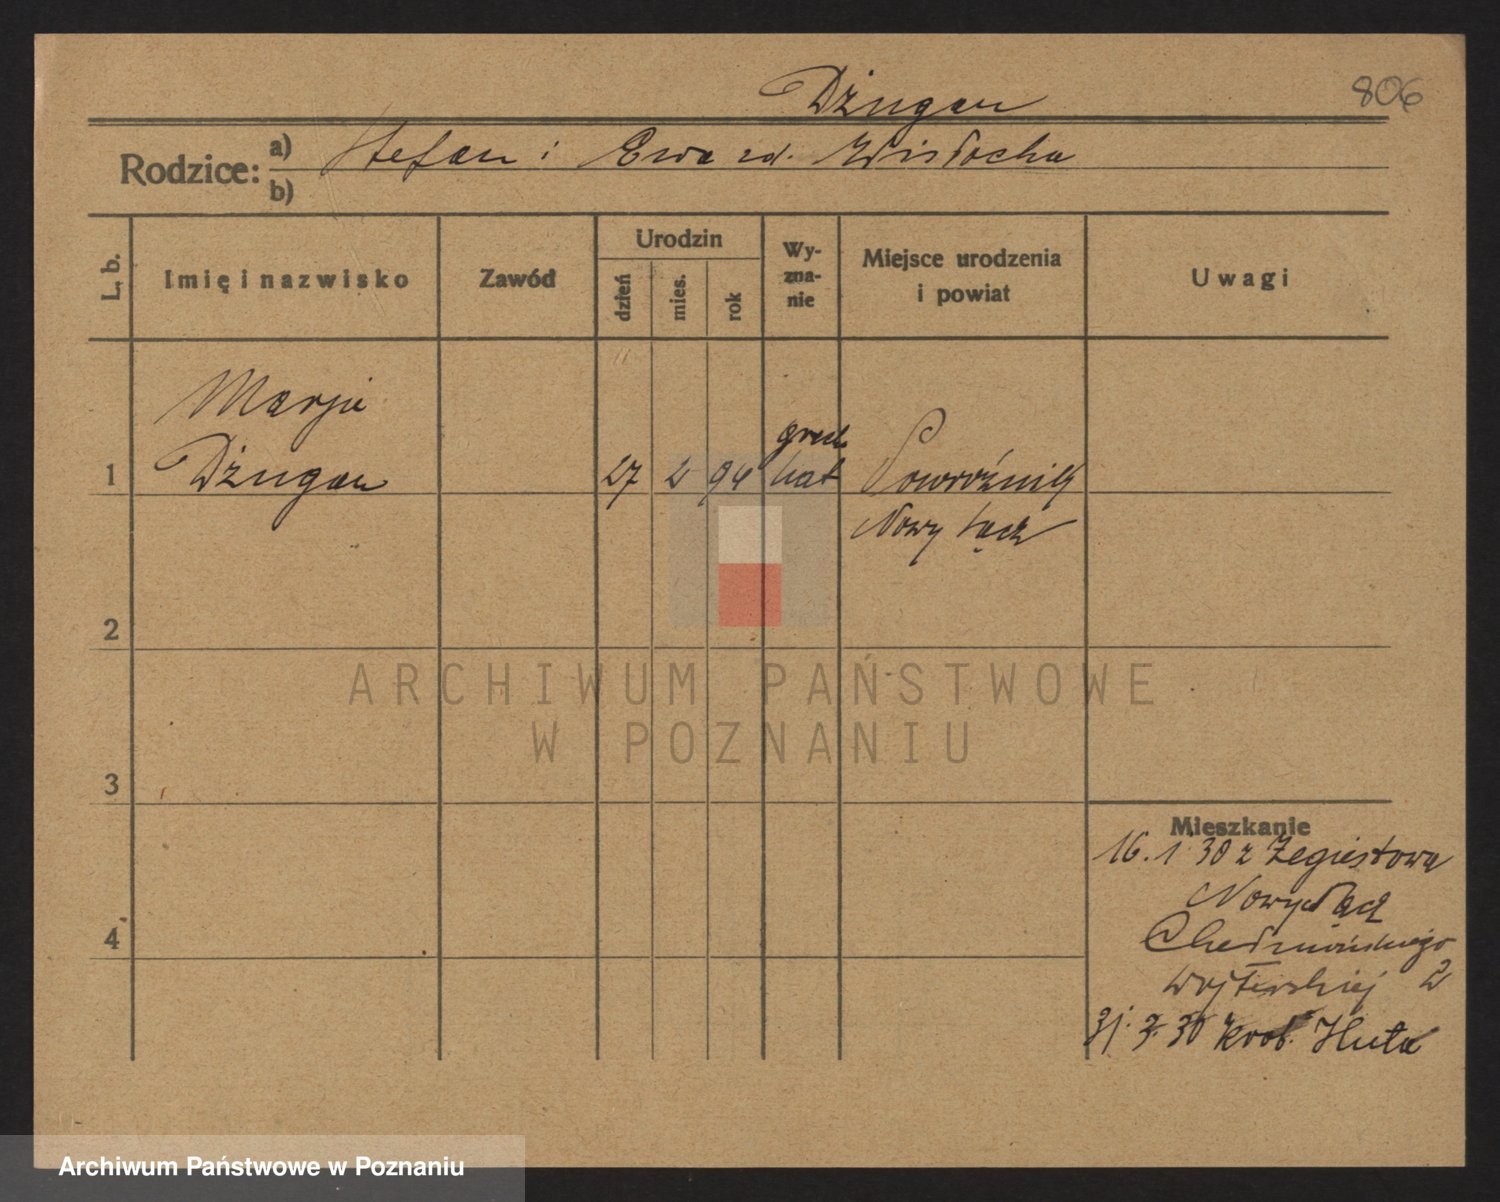 806
Dżugan
Rodzice: a) Stefan i Ewa zd. Wisłocha
b)
L. b.
Imię i nazwisko
Zawód
Urodzin
dzień
mies.
rok
Wy-
zna-
nie
Miejsce urodzenia
i powiat
Uwagi
Marja
1 Dżugan 27 2 94 grec. kat Powroźnik
Nowy Sącz
2
3
4
Mieszkanie
16. 1 30 z Żegiestowa
Nowy Sącz
2
31. 3. 30 Huta
ARCHIWUM PAŃSTWOWE
W POZNANIU
Archiwum Państwowe w Poznaniu